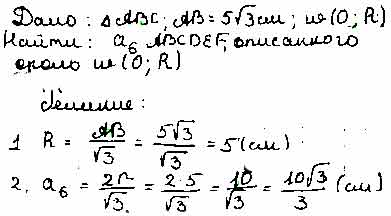 Дано: △ABC; AB = 5√3 см; ω(O; R)
Найти: a₆ ABCDEF, описанного
около ω(O; R)
Решение:
1. R = AB/√3 = 5√3/√3 = 5 (см)
2. a₆ = 2R/√3 = 2·5/√3 = 10/√3 = 10√3/3 (см)